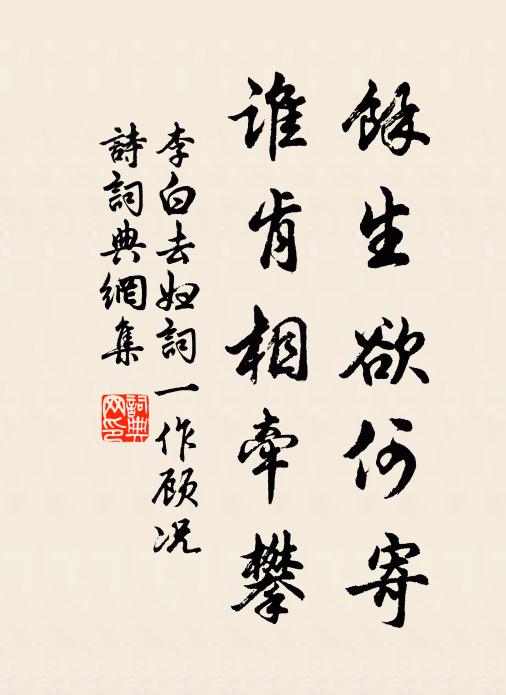 餘生欲何寄
誰肯相牽攀
李白去妇詞一作顾况
詩詞典網集
詞典网印